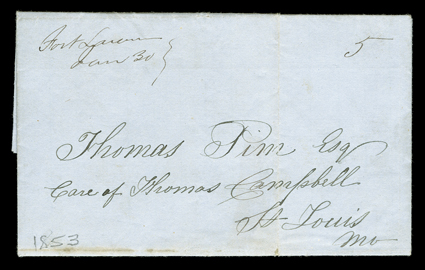 Fort
Jan 30
5
Thomas Pim Esq
Care of Thomas Campbell
St Louis
Mo
1853